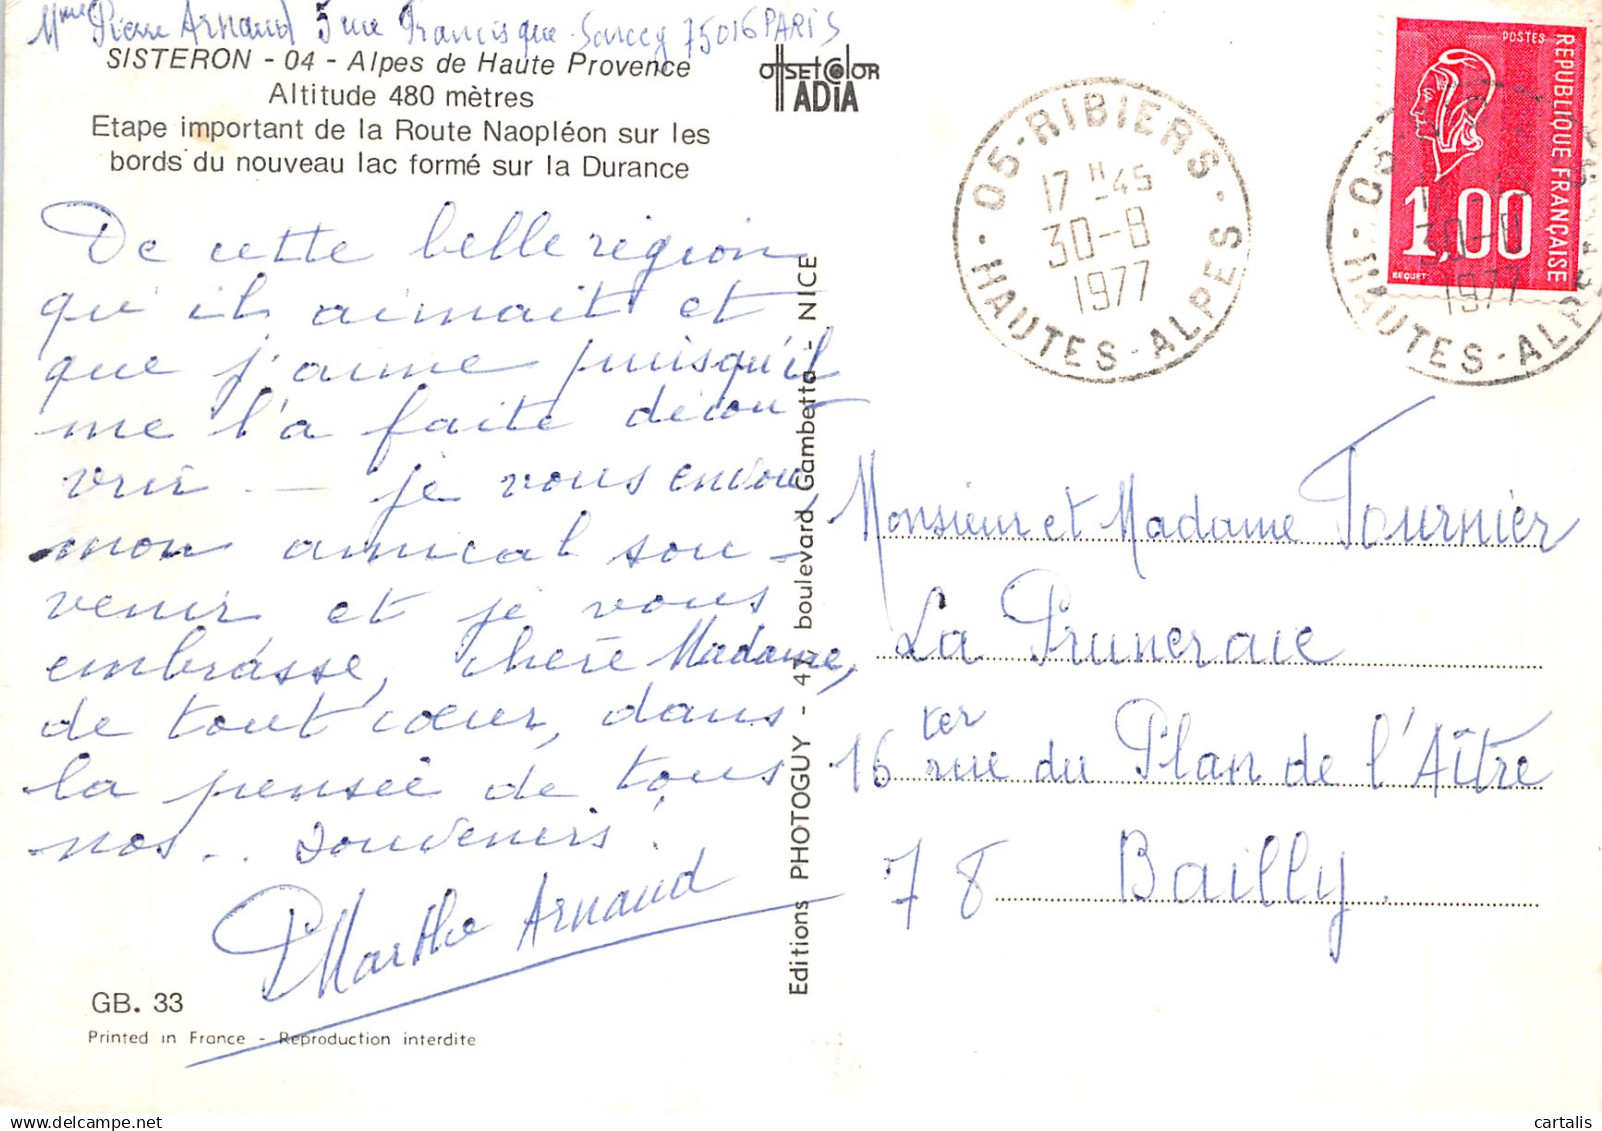 Mme Pierre Arnaud 5 rue Francisque-Sarcey 75016 PARIS
SISTERON - 04 - Alpes de Haute Provence
Altitude 480 mètres
Etape important de la Route Naopléon sur les
bords du nouveau lac formé sur la Durance
OffSETCOLOR
ADIA
De cette belle région
qu'il aimait et
que j'aime puisqu'il
me l'a faite décou-
vrir - je vous envoie
mon amical sou-
venir et je vous
embrasse, chère Madame,
de tout cœur, dans
la pensée de tous
nos.. souvenirs!
PMarthe Arnaud
GB. 33
Printed in France - Reproduction interdite
Editions PHOTOGUY - 47 boulevard Gambetta - NICE
05-RIBIERS-
17 H 45
30-8
1977
HAUTES-ALPES
05
30-8
1977
HAUTES-ALPES
POSTES
REPUBLIQUE FRANÇAISE
1,00
BEQUET
Monsieur et Madame Tournier
La Pruneraie
16 ter rue du Plan de l'Aître
78 Bailly.
delcampe.net
cartalis